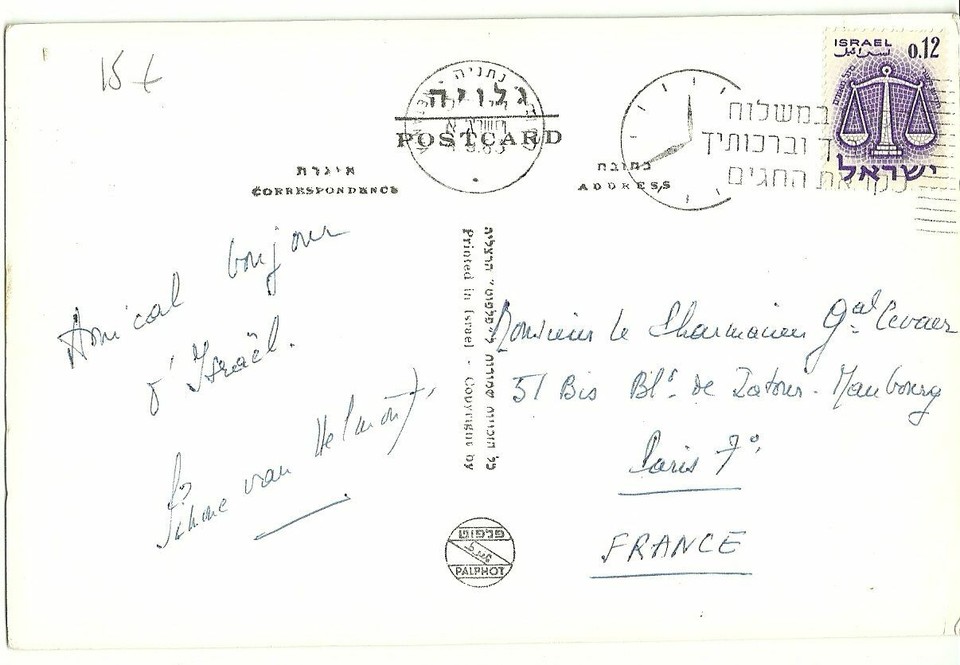 15 €
ISRAEL 0.12
نتניה
גלויה
POSTCARD
במשלוח
וברכותיך
לקראת החגים
ישראל
איגרת
CORRESPONDENCE
כתובת
ADDRESS
Amical bonjour
d'Israël.
van Helmont
Printed in Israel - Copyright by
כל הזכויות שמורות ל"פלפוט" הרצליה
Monsieur le Pharmacien Gal
51 Bis Bld de Latour-Maubourg
Paris 7e
FRANCE
פלפוט
PALPHOT